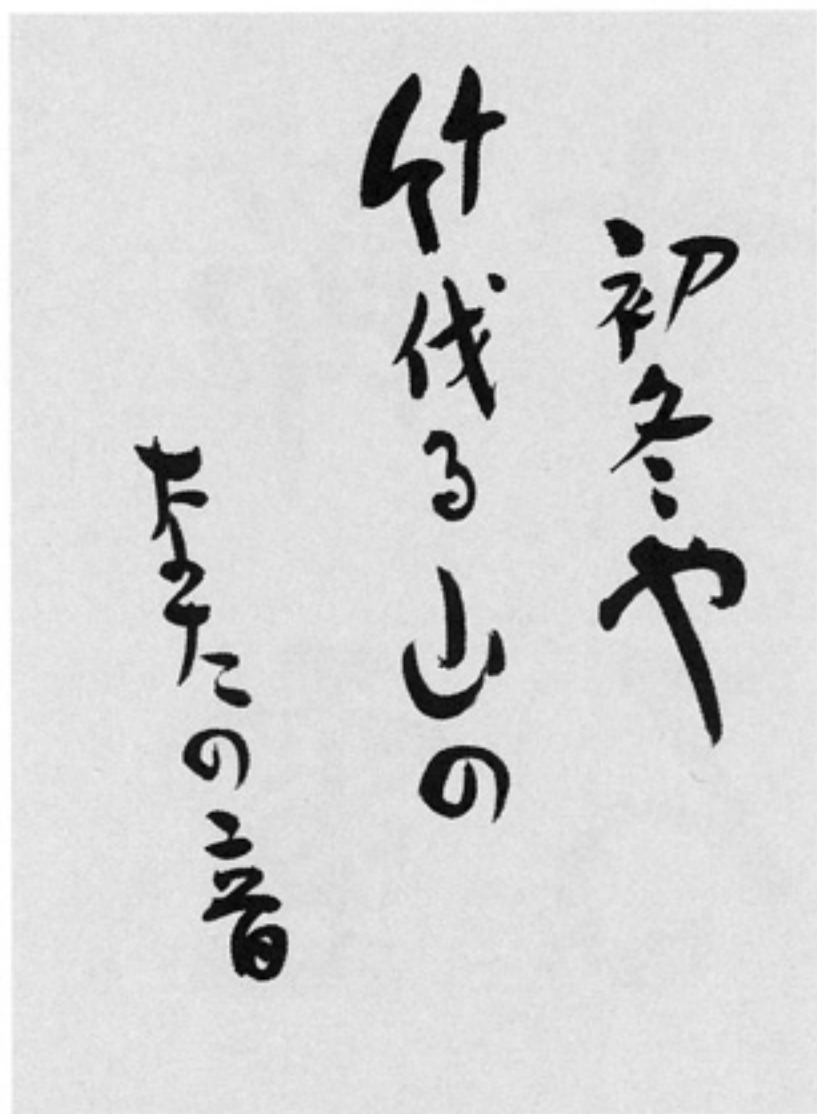 初冬や
竹伐る山の
なたの音